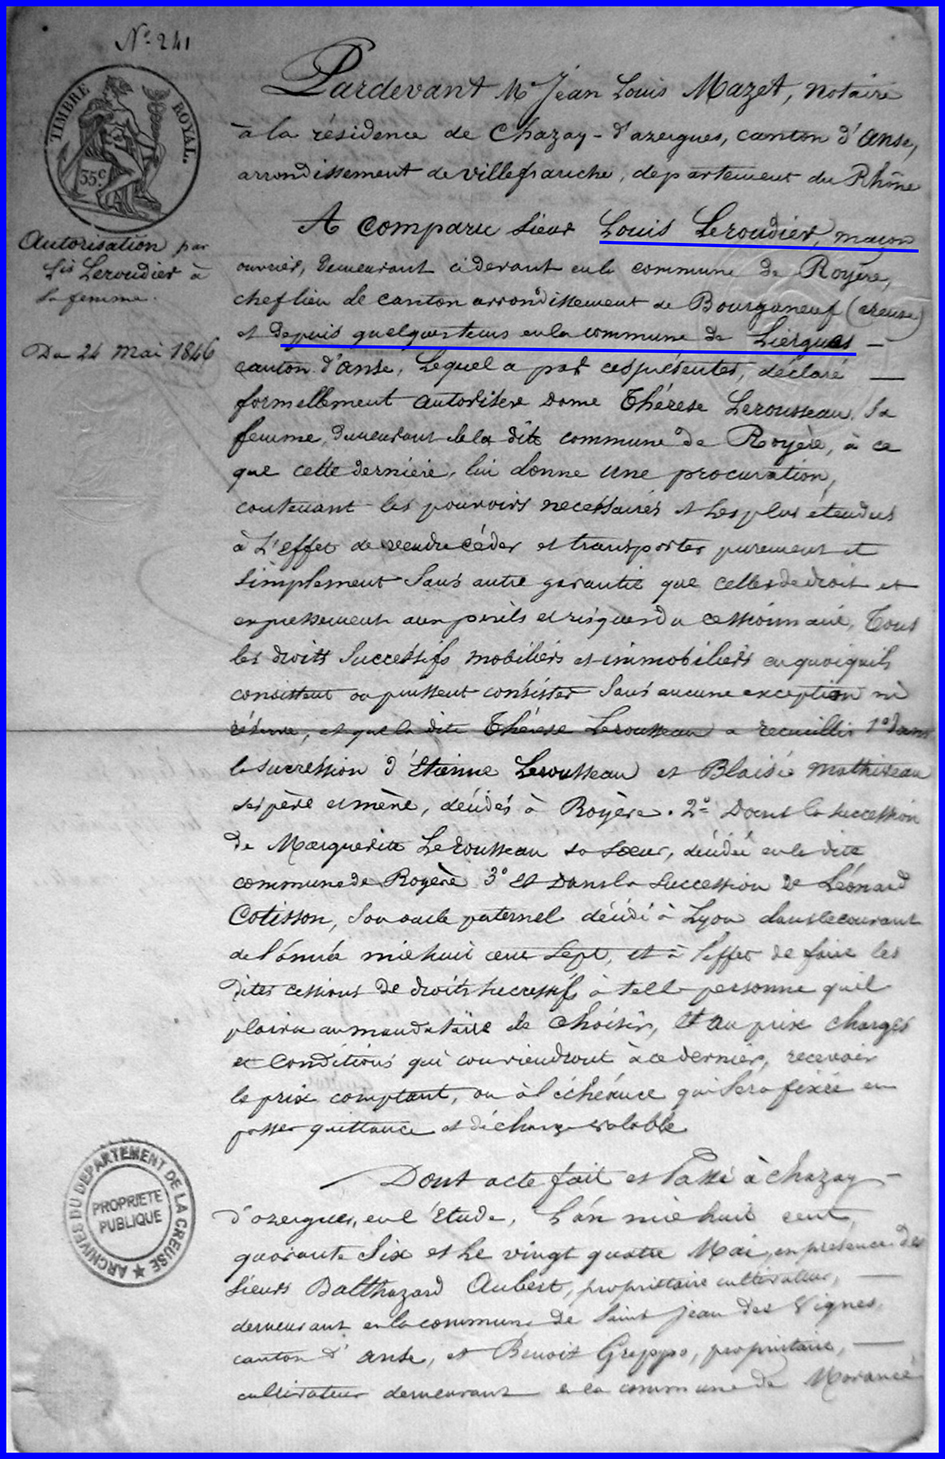 N° 241
TIMBRE ROYAL.
35c
Autorisation par
Sr Leroudier à
sa femme.
Du 24 Mai 1846
Pardevant Me Jean Louis Mazet, notaire
à la résidence de Chazay-d'azergues, canton d'anse,
arrondissement de villefranche, departement du Rhône
A comparu sieur Louis Leroudier, maçon
ouvrier, demeurant cidevant en la commune de Royère,
chef lieu de canton arrondissement de Bourganeuf (creuse)
et depuis quelques tems en la commune de Liergues —
canton d'anse, Lequel a par ces présentes, déclaré —
formellement autoriser dame Thérèse Lerousseau, sa
femme, demeurant en la dite commune de Royère, à ce
que cette dernière, lui donne une procuration,
contenant les pouvoirs necessaires et les plus etendus
à L'effet de vendre céder et transporter purement et
simplement sans autre garantie que celles de droit et
expressement aux perils et risques du cessionnaire, Tous
les droits successifs mobiliers et immobiliers en quoi qu'ils
consistent ou pussent consister sans aucune exception ni
réserve, et que la dite Thérèse Lerousseau a recueillis 1° dans
la succession d'Etienne Lerousseau et Blaise Mathiveau
ses père et mère, décédés à Royère. 2° Dans la succession
de Marguerite Lerousseau sa sœur, décédée en la dite
commune de Royère 3° Et Dans la succession de Léonard
Cotisson, son oncle paternel décédé à Lyon dans le courant
de l'année mil huit cent sept, et à l'effet de faire les
dites cessions de droits successifs à telle personne qu'il
plaira au mandataire de choisir, Et au prix charges
et conditions qui conviendront à ce dernier, recevoir
le prix comptant, ou à l'échéance qui sera fixée en
passer quittance et décharge valable
Dont acte fait et Passé à Chazay—
d'azergues, en l'Etude, L'an mil huit cent,
quarante six et Le vingt quatre Mai, en présence des
sieurs Balthazard Aubert, propriétaire cultivateur, —
demeurant en la commune de Saint Jean des Vignes,
canton d'anse, et Benoit Greppo, propriétaire, —
cultivateur demeurant en la commune de Morancé
ARCHIVES DU DEPARTEMENT DE LA CREUSE
PROPRIETE
PUBLIQUE